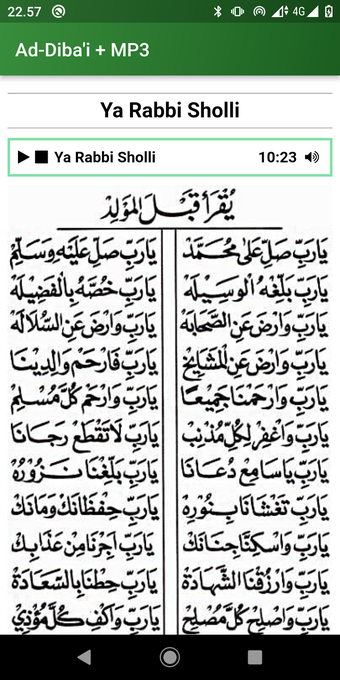 22.57
4G
Ad-Diba'i + MP3
Ya Rabbi Sholli
Ya Rabbi Sholli 10:23
يُقْرَأُ قَبْلَ الْمَوْلِدْ
يَارَبِّ صَلِّ عَلٰى مُحَمَّدْ يَارَبِّ صَلِّ عَلَيْهِ وَسَلِّمْ
يَارَبِّ بَلِّغْهُ الْوَسِيْلَهْ يَارَبِّ خُصَّهُ بِالْفَضِيْلَهْ
يَارَبِّ وَارْضَ عَنِ الصَّحَابَهْ يَارَبِّ وَارْضَ عَنِ السُّلَالَهْ
يَارَبِّ وَارْضَ عَنِ الْمَشَايِخْ يَارَبِّ فَارْحَمْ وَالِدِيْنَا
يَارَبِّ وَارْحَمْنَا جَمِيْعًا يَارَبِّ وَارْحَمْ كُلَّ مُسْلِمْ
يَارَبِّ وَاغْفِرْ لِكُلِّ مُذْنِبْ يَارَبِّ لَاتَقْطَعْ رَجَانَا
يَارَبِّ يَاسَامِعْ دُعَانَا يَارَبِّ بَلِّغْنَا نَزُوْرُهْ
يَارَبِّ تَغْشَانَا بِنُوْرِهْ يَارَبِّ حِفْظَانَكْ وَمَانَكْ
يَارَبِّ وَاسْكِنَّا جِنَانَكْ يَارَبِّ اَجِرْنَا مِنْ عَذَابِكْ
يَارَبِّ وَارْزُقْنَا الشَّهَادَةْ يَارَبِّ حِطْنَا بِالسَّعَادَةْ
يَارَبِّ وَاصْلِحْ كُلَّ مُصْلِحْ يَارَبِّ وَاكْفِ كُلَّ مُؤْذِيْ